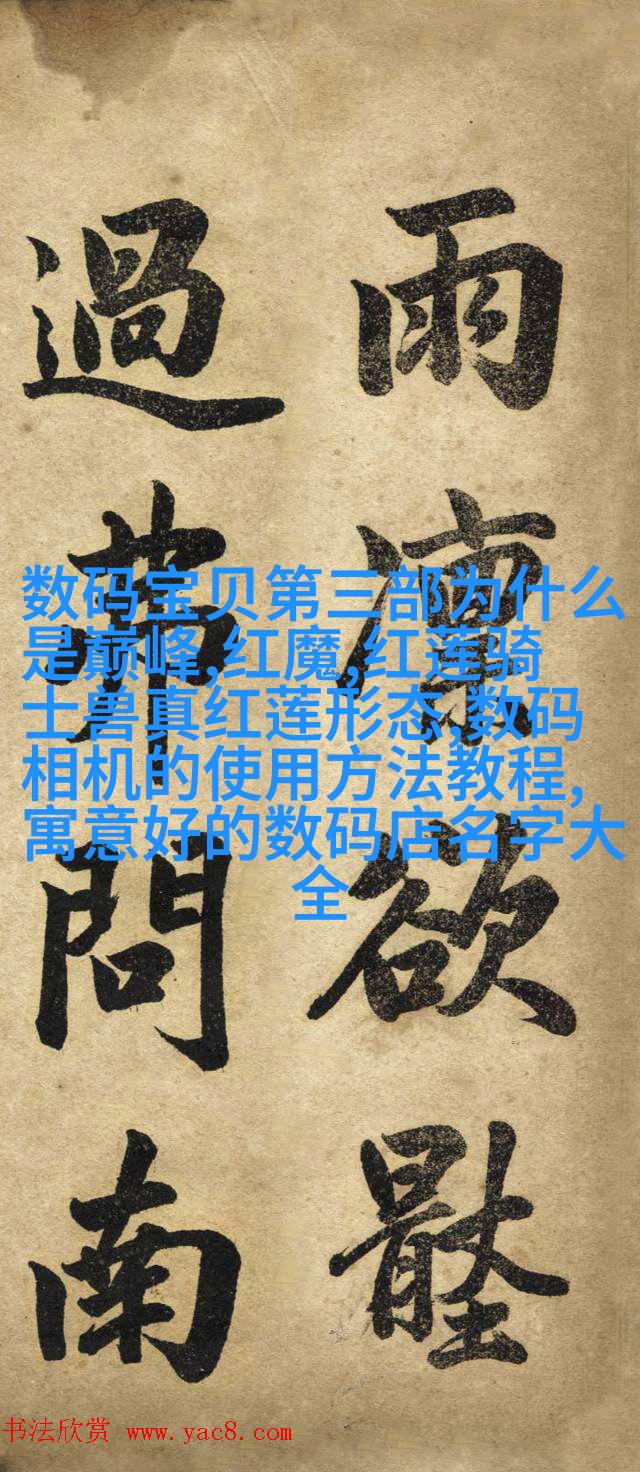 雨凜欲
過問南
数码宝贝第三部为什么
是巅峰,红魔,红莲骑
士兽真红莲形态,数码
相机的使用方法教程,
寓意好的数码店名字大
全
书法欣赏 www.yac8.com